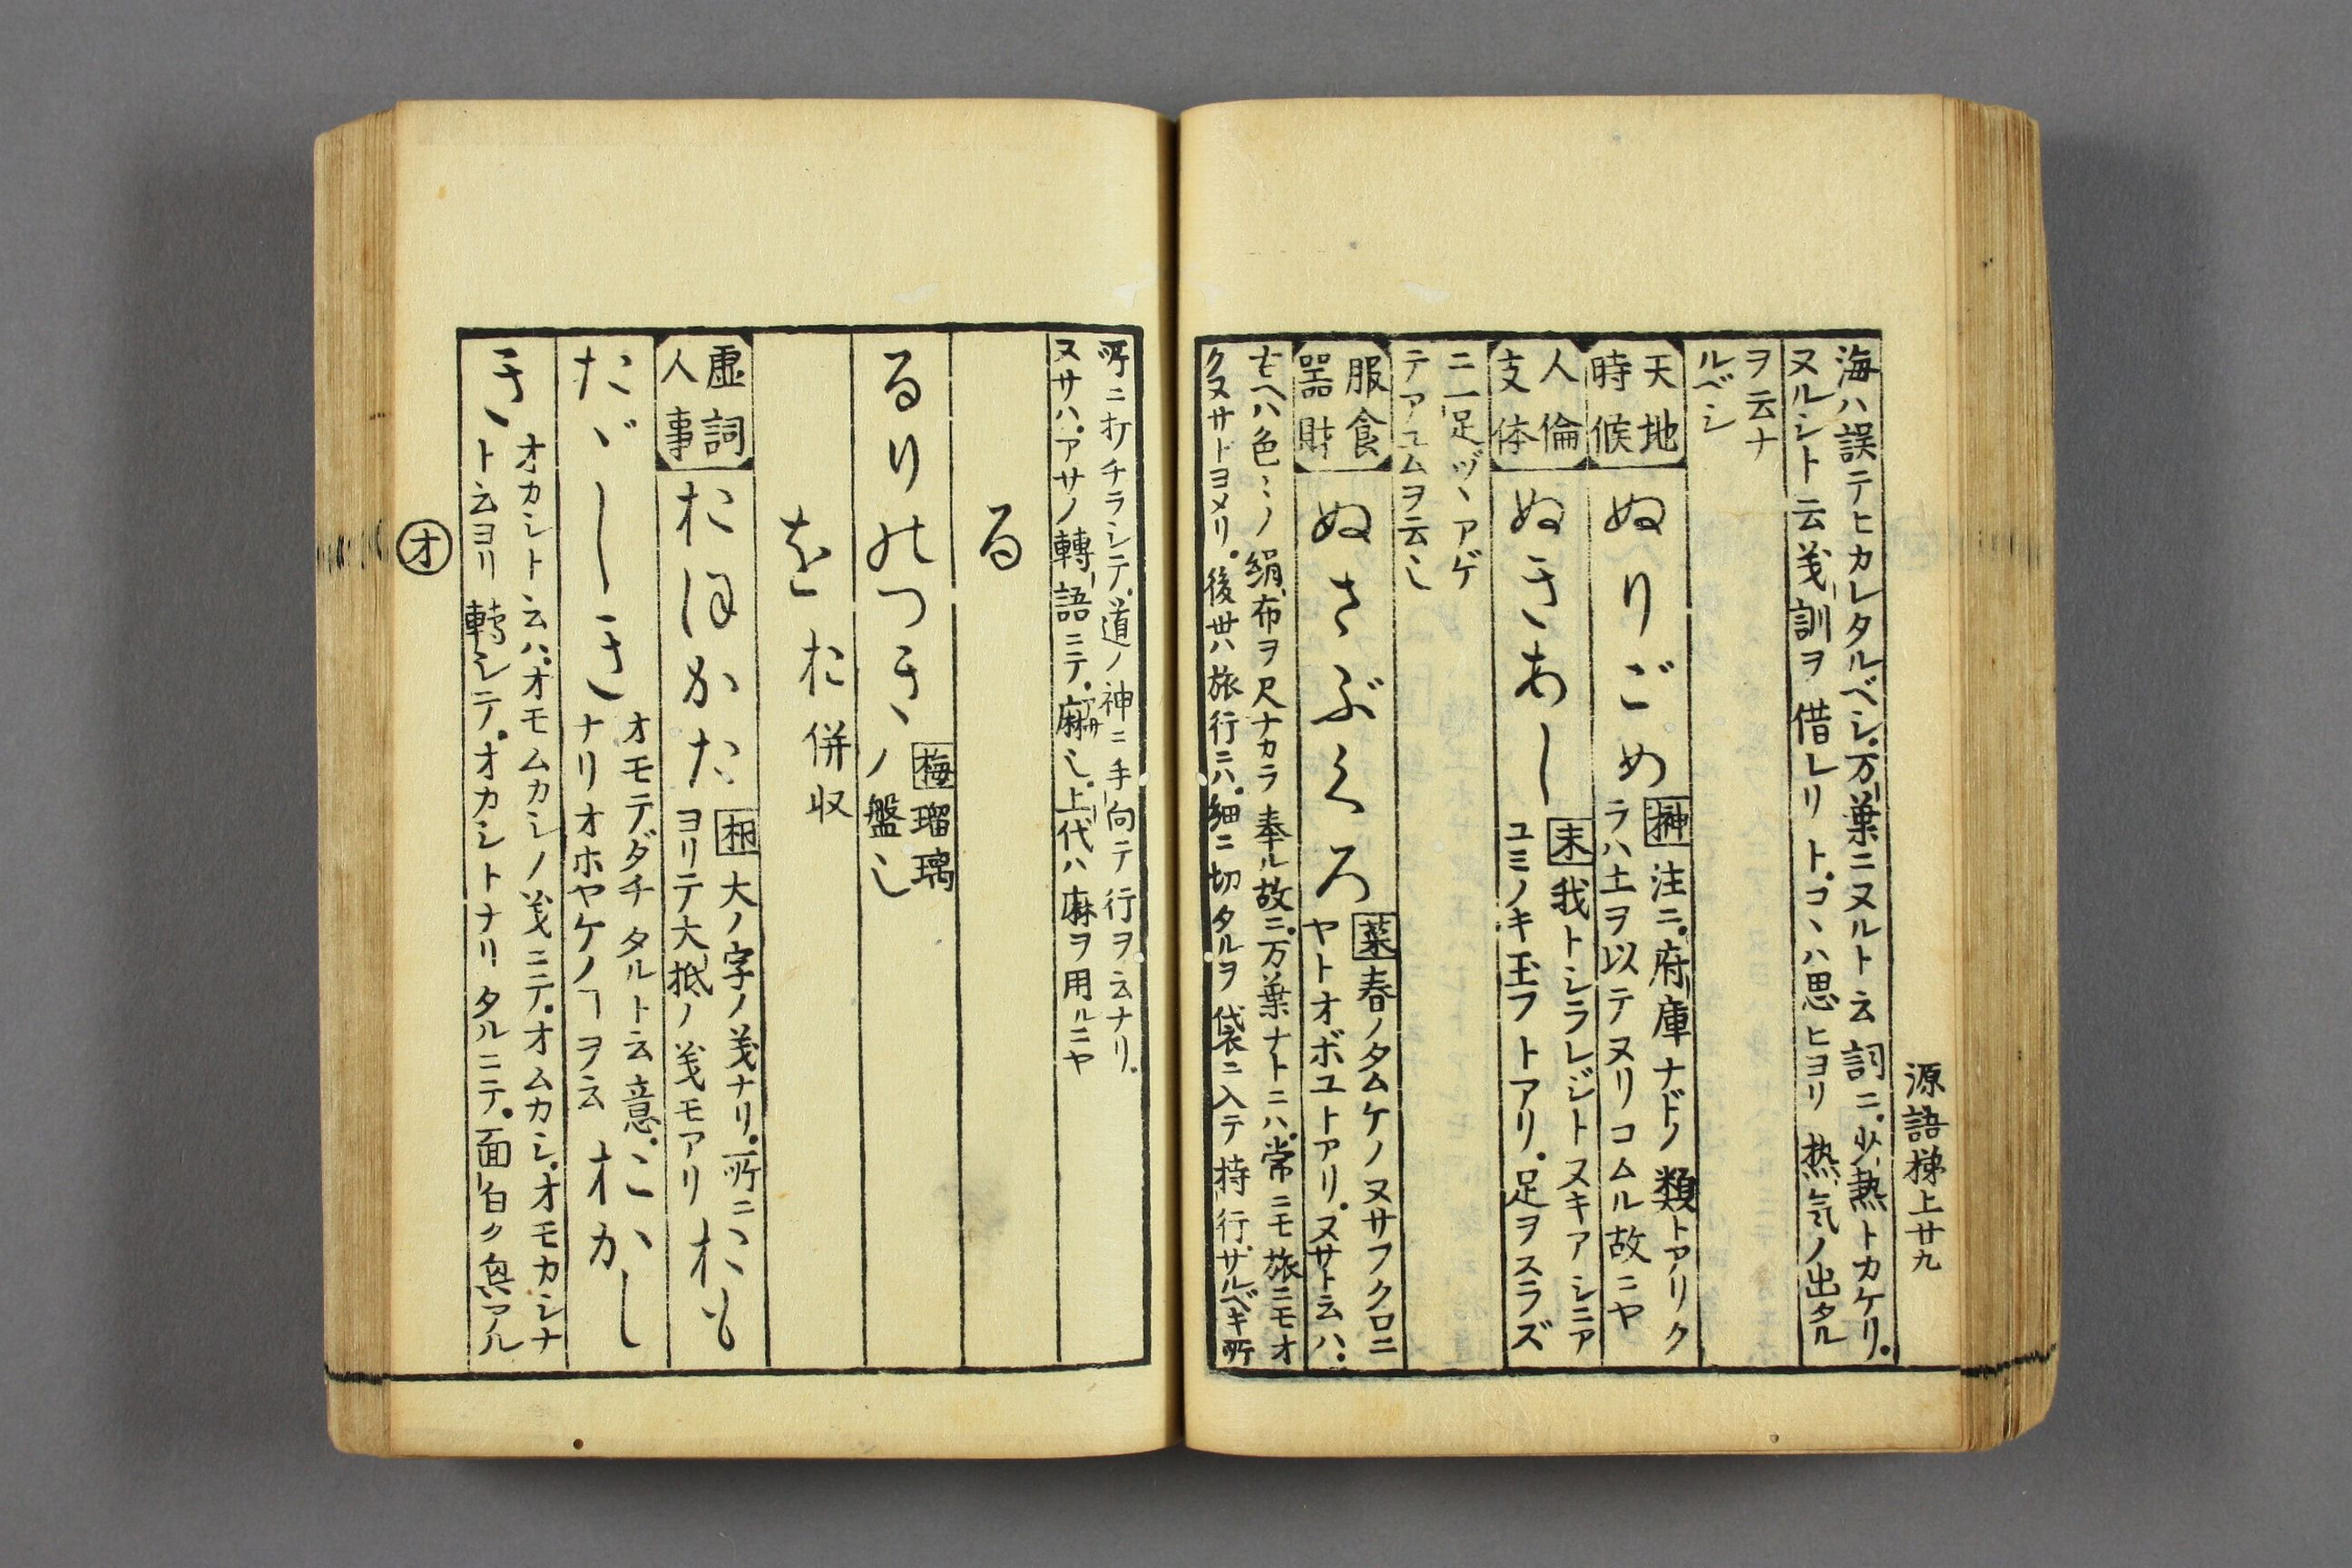 源語梯上廿九
海ハ誤テヒカレタルベシ。万葉ニヌルト云詞ニ。少熱トカケリ。
ヌルシト云義訓ヲ借レリト。コヽハ思ヒヨリ熱気ノ出タル
ヲ云ナ
ルベシ
天地
時候
ぬりごめ
榊 注ニ。府庫ナドノ類トアリク
ラハ土ヲ以テヌリコムル故ニヤ
人倫
支体
ぬきあし
末 我トシラレジトヌキアシニア
ユミノキ玉フトアリ。足ヲスラズ
ニ一足ヅヽアゲ
テアユムヲ云し
服食
器財
ぬさぶくろ
葉 春ノタムケノヌサフクロニ
ヤトオボユトアリ。ヌサト云ハ。
色〻ノ絹布ヲ尺ナカラ奉ル故ニ。万葉ナトニハ。常ニモ旅ニモオ
クヌサトヨメリ。後世ハ旅行ニハ。細ニ切タルヲ袋ニ入テ持行。サルベキ所
所ニ打チラシテ。道ノ神ニ手向テ行ヲ云ナリ。
ヌサハ。アサノ轉語ニテ。麻し。上代ハ麻ヲ用ルニヤ
る
るりのつき
梅 瑠璃
ノ盤し
を お 併収
虚詞
人事
おほかた
桐 大ノ字ノ義ナリ。所ニ
ヨリテ大抵ノ義モアリ
おも
だゞしき
オモテダチタルト云意。
ナリオホヤケノヿヲ云
こゝ
オかし
き
オカシト云ハ。オモムカシノ義ニテ。オムカシ。オモカシナ
ト云ヨリ轉シテ。オカシトナリタルニテ。面白ク興アル
オ